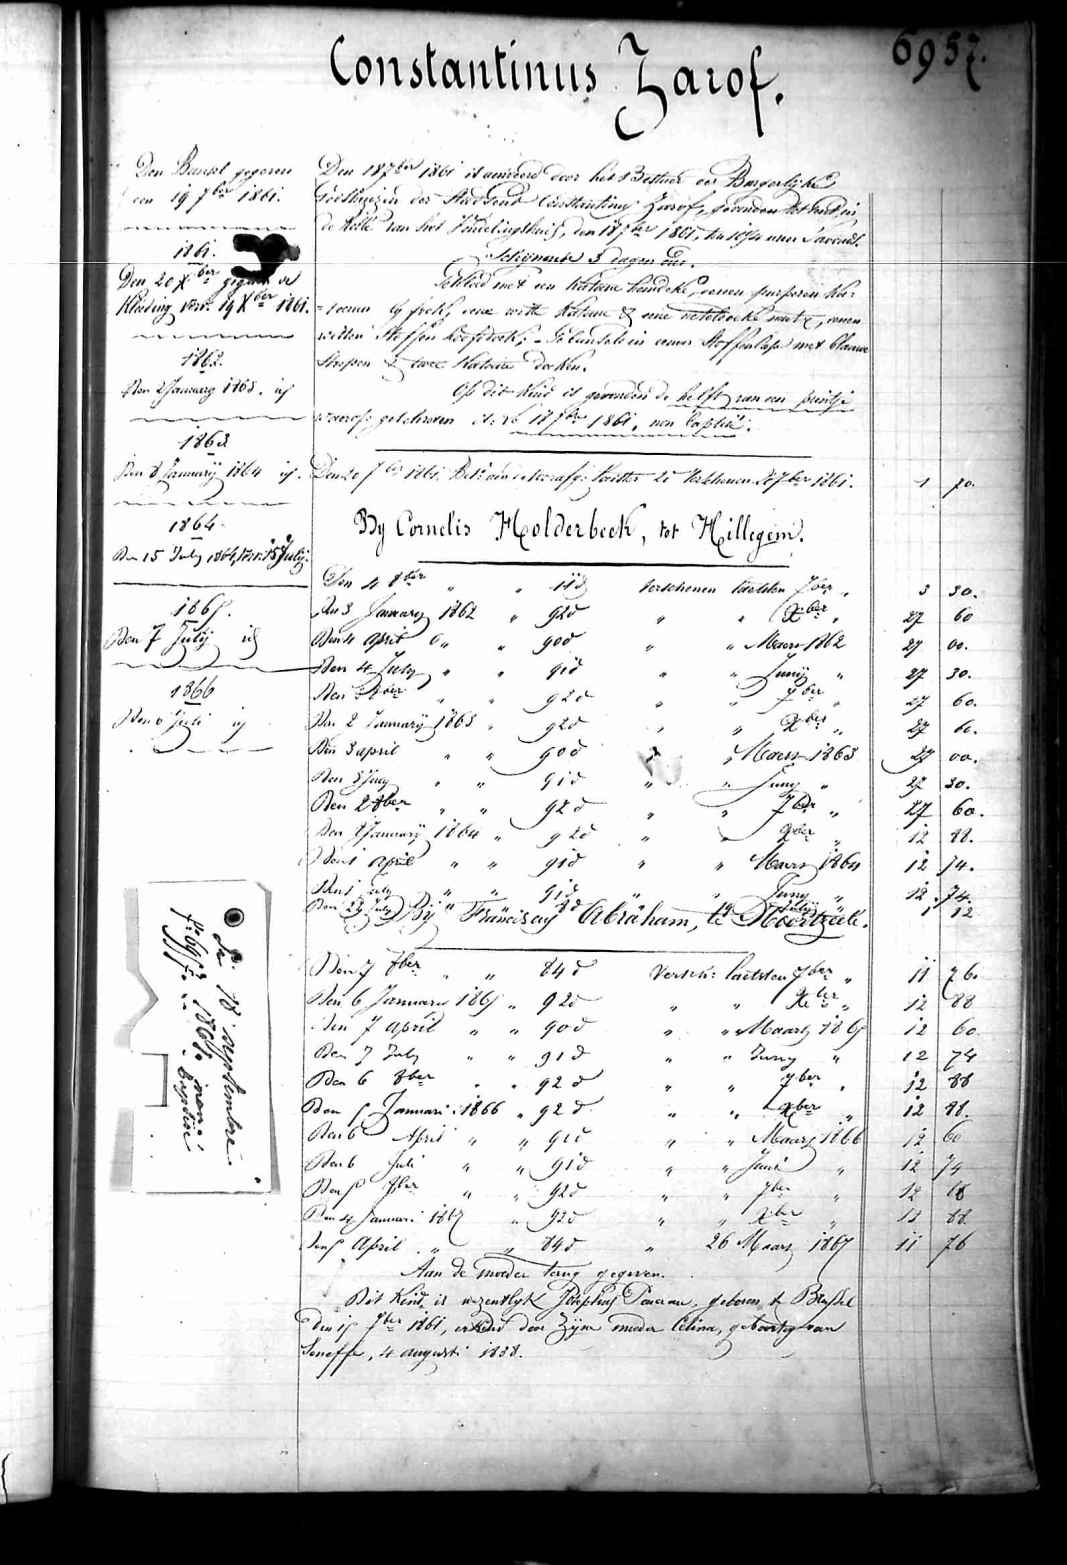 6957.
Constantinus Zarof.
Den Bundel gegeven
den 19 7ber 1861.
1861.
Den 20 Xber gegeven de
Kleeding verv: 19 Xber 1861.
1862.
Den 2 January 1863. id
1863
Den 8 January 1864 id.
1864.
Den 15 July 1864, verv: 15 July.
1865.
Den 7 July id
1866
Den 6 Juli id
Den 18 7ber 1861 is aanveerd door het Bestuur der Burgerlijke
Godshuizen der Stad Gend Constantinus Zarof, gevonden tot Gend, in
de Rolle van het Vindelingshuis, den 18 7ber 1861, ten 10 1/4 uren 's avonds.
Schynende 3 dagen oud.
Gekleed met een katoene hemdeke, eenen purperen ka-
=toenen frok, eene witte katoene & eene neteldoeke muts, eenen
witten stoffen hoofddoek; Gebunseld in eenen stoffen lap met blauwe
streepen & twee katoene doeken.
Op dit Kind is gevonden de helft van een printje
waerop geschreven is: le 18 7bre 1861, non baptisé.
Den 20 7ber 1861, 20 Verschenen 20 7ber 1861. 1 70.
By Cornelis Holderbeek, tot Hillegem.
Den 4 8ber " " 11d verschenen laetsten 7ber " 3 30.
Den 3 January 1862 " 92d " " Xber " 27 60
Den 4 April " " 90d " " Maert 1862 27 00.
Den 4 July " " 91d " " Juny " 27 30.
Den 8ber " " 92d " " 7ber " 27 60.
Den 2 January 1863 " 92d " " Xber " 27 60.
Den 3 april " " 90d " " Maert 1863 27 00.
Den 3 July " " 91d " " Juny " 27 30.
Den 2 8ber " " 92d " " 7ber " 27 60.
Den 8 January 1864 " 92d " " Xber " 12 88.
Den 1 April " " 91d " " Maert 1864 12 74.
Den 1 July " " 91d " " Juny " 12 74.
Den July 8d 14 July " 1 12
By Franciscus Abraham, te Moortzeele.
Den 7 8ber " " 84d Versch: laetsten 7ber " 11 76
Den 6 January 1865 " 92d " " Xber " 12 88
Den 7 April " " 90d " " Maart 1865 12 60
Den 7 July " " 91d " " Juny " 12 74
Den 6 8ber " " 92d " " 7ber " 12 88
Den 5 Januari 1866 " 92d " " Xber " 12 88.
Den 6 April " " 90d " " Maart 1866 12 60
Den 6 Juli " " 91d " " Juni " 12 74
Den 5 8ber " " 92d " " 7ber " 12 88
Den 4 Januari 1867 " 92d " " Xber " 12 88
Den 5 April " " 84d " 26 Maart 1867 11 76
Aan de moeder terug gegeven.
Dit Kind is wezentlyk Josephus, geboren te Brussel
den 15 7ber 1861, erkend door zyne moeder Celina, geboortig van
Seneffe, 4 augusti 1838.
Le 18 septembre
1861. non
baptisé
fo 6957.